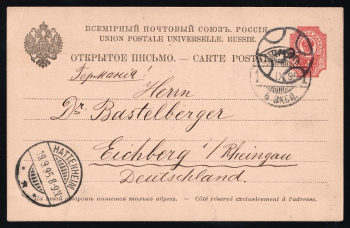 ВСЕМІРНЫЙ ПОЧТОВЫЙ СОЮЗЪ. РОССІЯ
UNION POSTALE UNIVERSELLE. RUSSIE.
ОТКРЫТОЕ ПИСЬМО. — CARTE POSTALE
Германія
Herrn
Dr. Bastelberger
Eichberg i/Rheingau
Deutschland.
HATTENHEIM
На этой сторонѣ пишется только адресъ. — Côté réservé exclusivement à l'adresse.